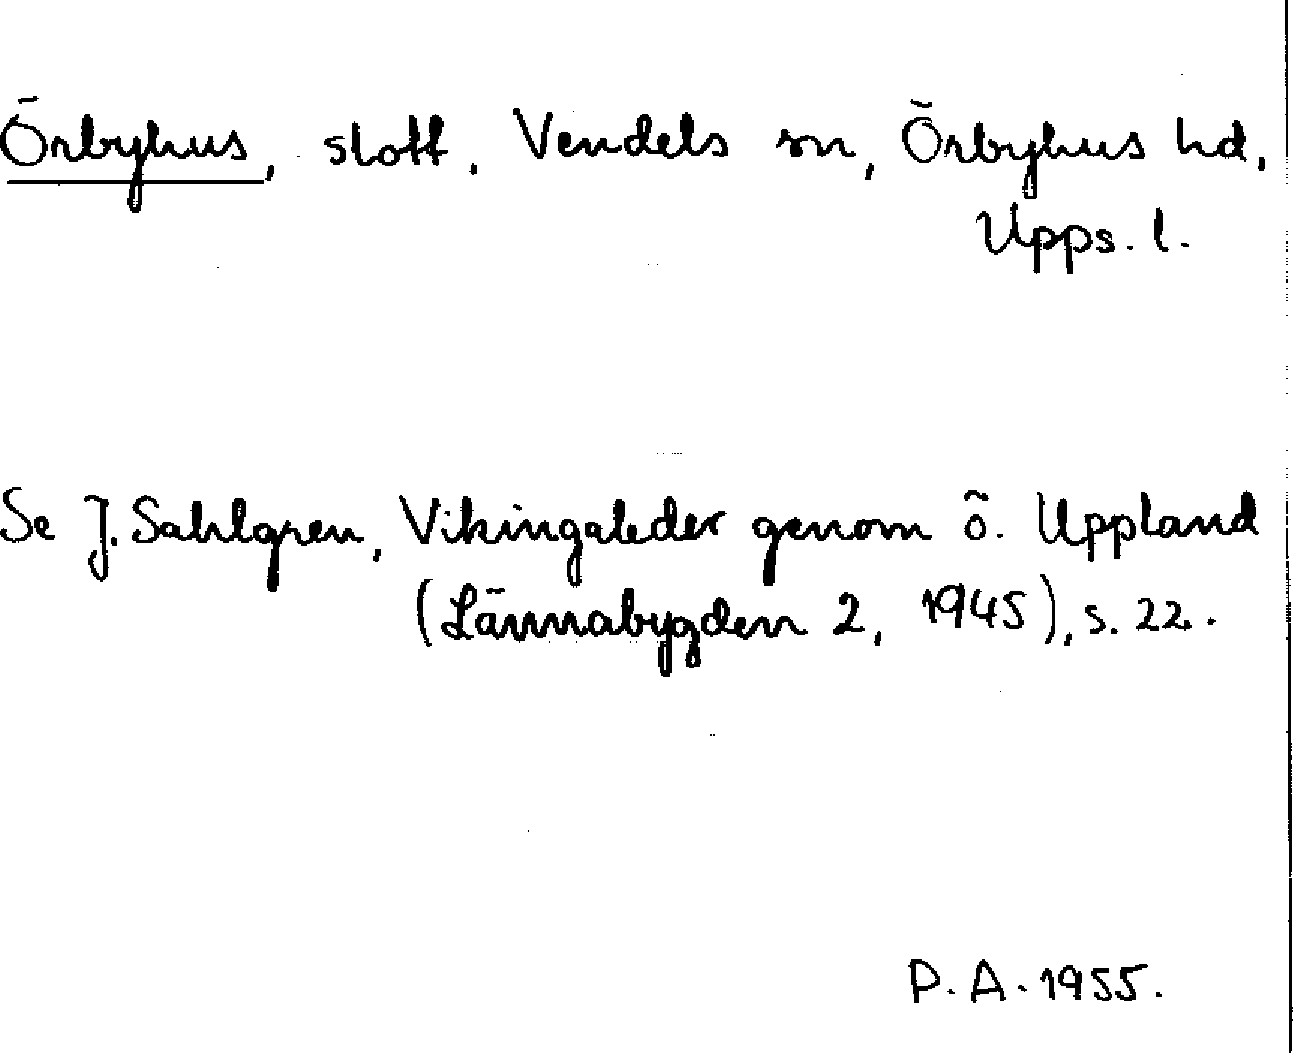 Örbyhus, slott, Vendels sn, Örbyhus hd,
Upps. l.
Se J. Sahlgren, Vikingaleder genom ö. Uppland
(Lännabygden 2, 1945), s. 22.
P. A. 1955.